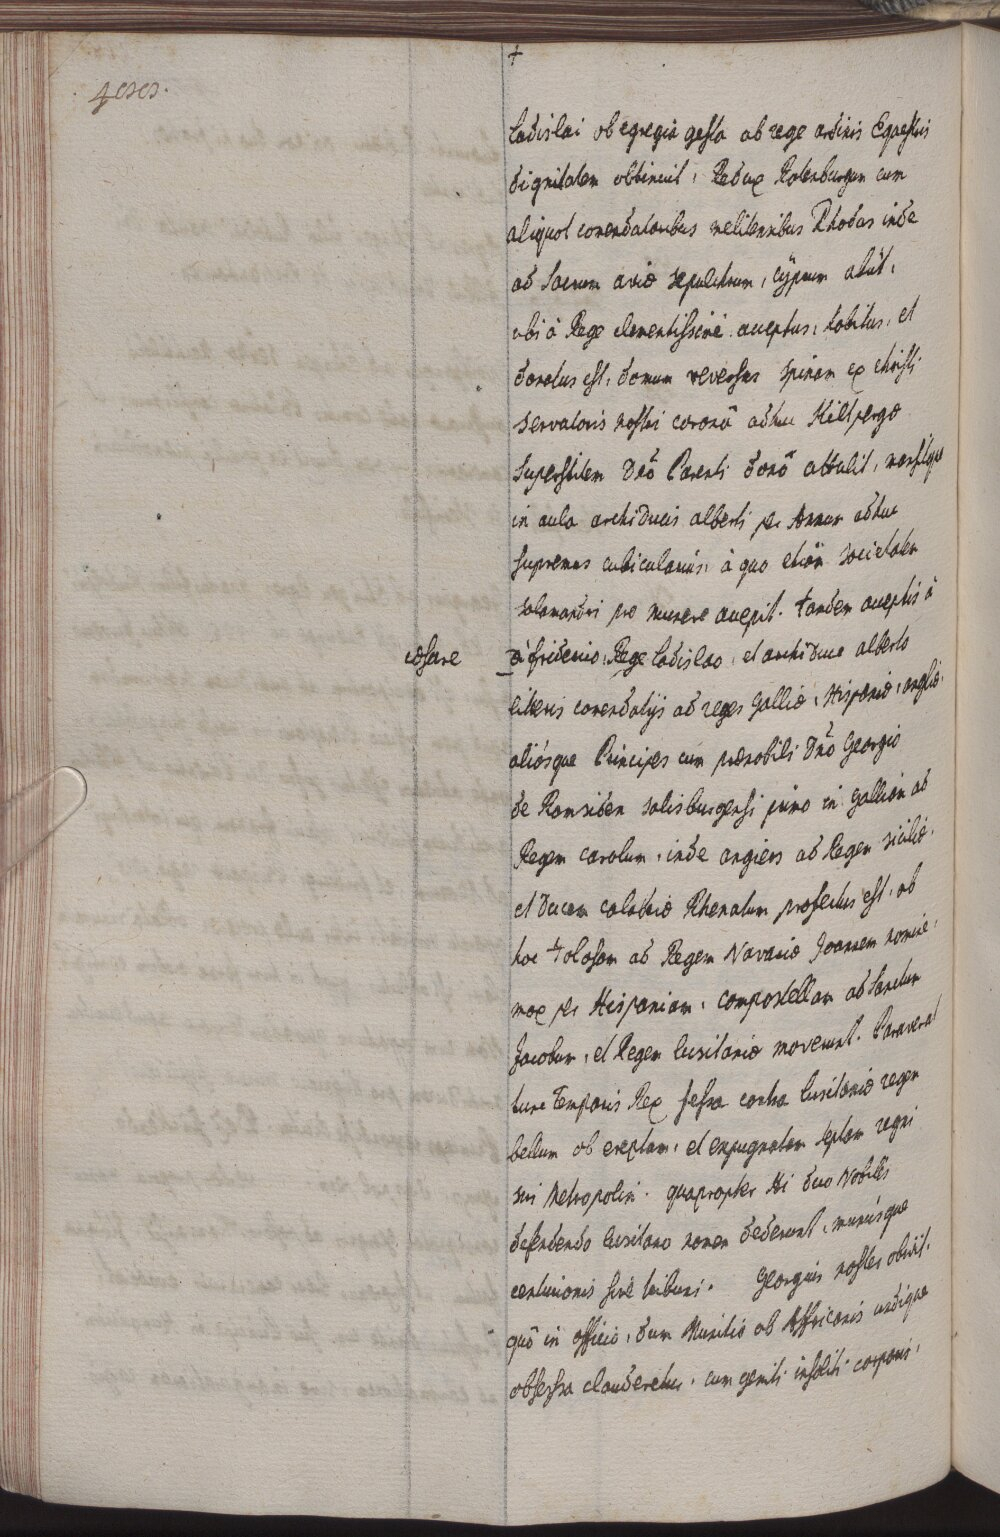 +
Ladislai ob egregia gesta ab rege ordinis Equestris
dignitatem obtinuit, Redux Rotenburgum cum
aliquot comendatoribus melitensibus Rhodas inde
ad Sacrum avidæ sepulchrum, Cÿprum abiit,
ubi à Rege clementissimè acceptus, habitus, et
donatus est, domum reversus spinam ex christi
servatoris nostri coronâ adhuc Kilpergæ
superstitem Dno Parenti dono attulit, mansitque
in aula archiducis alberti per Annum adhuc
supremus cubicularius, à quo etiam societatem
salamandri pro munere accepit. tandem acceptis à
cæsare à friderico, Rege Ladislao, et archiduce alberto
literis comendatijs ad reges Galliæ, Hispaniæ, angliæ,
aliósque Principes cum prænobili Dno Georgio
de Ramsiden salisburgensi primo in galliam ad
Regem carolum, inde angiers ad Regem siciliæ,
et Ducem calabriæ Rhenatum profectus est, ab
hoc Tolosam ad Regem Navariæ Joannem nomine,
mox per Hispaniam, compostellam ad Sanctum
Jacobum, et Regem lusitaniæ moverunt. Paraverat
tunc Temporis Rex fessæ contra lusitaniæ regem
bellum ob ereptam, et expugnatam septam regni
sui Metropolim. quapropter Hi duo Nobiles
defendendo lusitano nomen dederunt, munúsque
centurionis sive tribuni. Georgius noster obivit,
quô in officio, dum Munitio ab Affricanis undique
obsessa clauderetur, cum genti insoliti corporis,